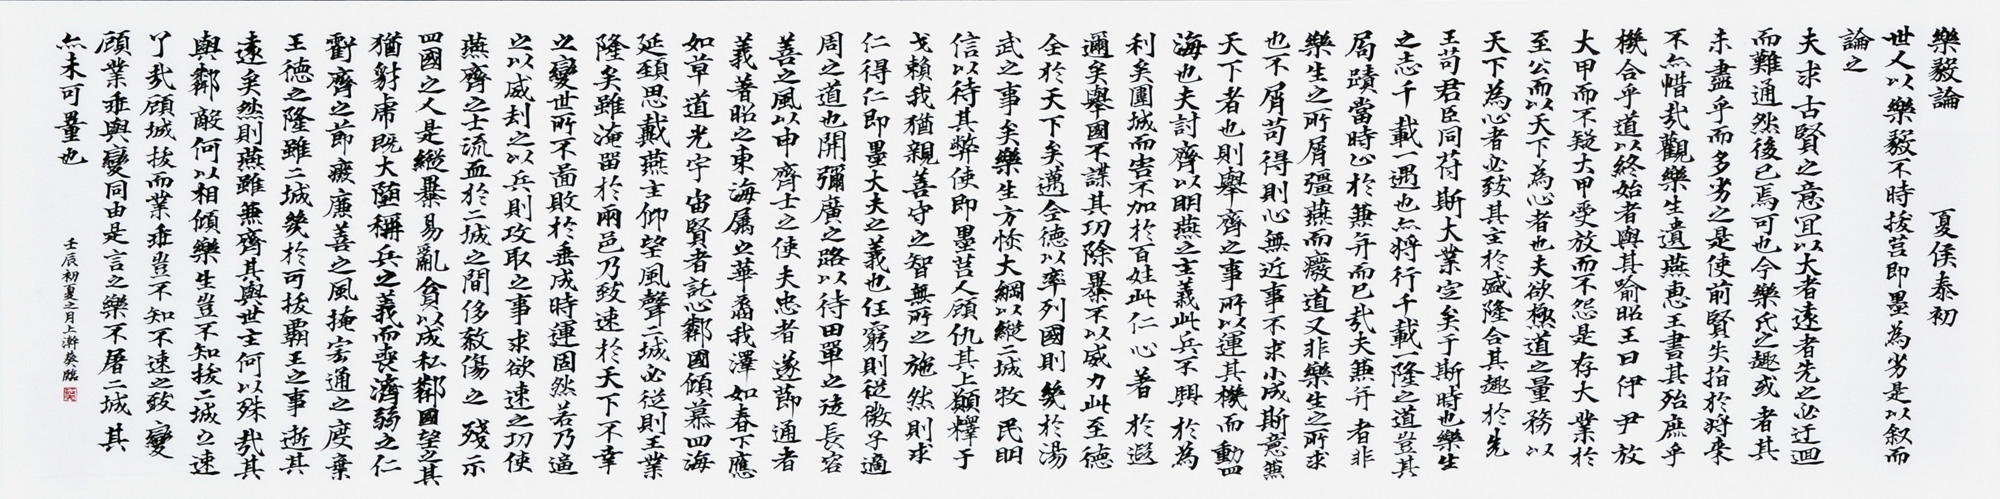 樂毅論 夏侯泰初
世人以樂毅不時拔莒即墨為劣是以叙而
論之
夫求古賢之意宜以大者遠者先之必迂迴
而難通然後已焉可也今樂氏之趣或者其
未盡乎而多劣之是使前賢失指於將來
不亦惜哉觀樂生遺燕惠王書其殆庶乎
機合乎道以終始者與其喻昭王曰伊尹放
大甲而不疑大甲受放而不怨是存大業於
至公而以天下為心者也夫欲極道之量務以
天下為心者必致其主於盛隆合其趣於先
王苟君臣同苻斯大業定矣于斯時也樂生
之志千載一遇也亦將行千載一隆之道豈其
局蹟當時止於兼并而已哉夫兼并者非
樂生之所屑彊燕而廢道又非樂生之所求
也不屑苟得則心無近事不求小成斯意無
天下者也則舉齊之事所以運其機而動四
海也夫討齊以明燕之主義此兵不興於為
利矣圍城而害不加於百姓此仁心著於遐
邇矣舉國不謀其功除暴不以威力此至德
全於天下矣邁全德以率列國則幾於湯
武之事矣樂生方恢大綱以縱二城牧民明
信以待其弊使即墨莒人顧仇其上願釋于
戈賴我猶親善守之智無所之施然則求
仁得仁即墨大夫之義也任窮則從微子適
周之道也開彌廣之路以待田單之徒長容
善之風以申齊士之使夫忠者遂節通者
義著昭之東海屬之華裔我澤如春下應
如草道光宇宙賢者託心鄰國傾慕四海
延頸思戴燕主仰望風聲二城必從則王業
隆矣雖淹留於兩邑乃致速於天下不幸
之變世所不啚敗於垂成時運固然若乃逼
之以威刦之以兵則攻取之事求欲速之功使
燕齊之士流血於二城之間侈殺傷之殘示
四國之人是縱暴易亂貪以成私鄰國望之其
猶豺虎既大墮稱兵之義而喪濟弱之仁
虧齊之節癈廉善之風掩宏通之度棄
王德之隆雖二城幾於可拔霸王之事逝其
遠矣然則燕雖兼齊其與世主何以殊哉其
與鄰敵何以相傾樂生豈不知拔二城之速
了哉顧城拔而業乖豈不知不速之致變
顧業乖與變同由是言之樂不屠二城其
亦未可量也
壬辰初夏之月上澣 臨